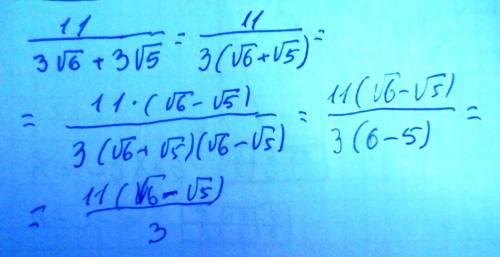 11/(3√6 + 3√5) = 11/(3(√6 + √5)) =
= 11·(√6 - √5)/(3(√6 + √5)(√6 - √5)) = 11(√6 - √5)/(3(6 - 5)) =
= 11(√6 - √5)/3